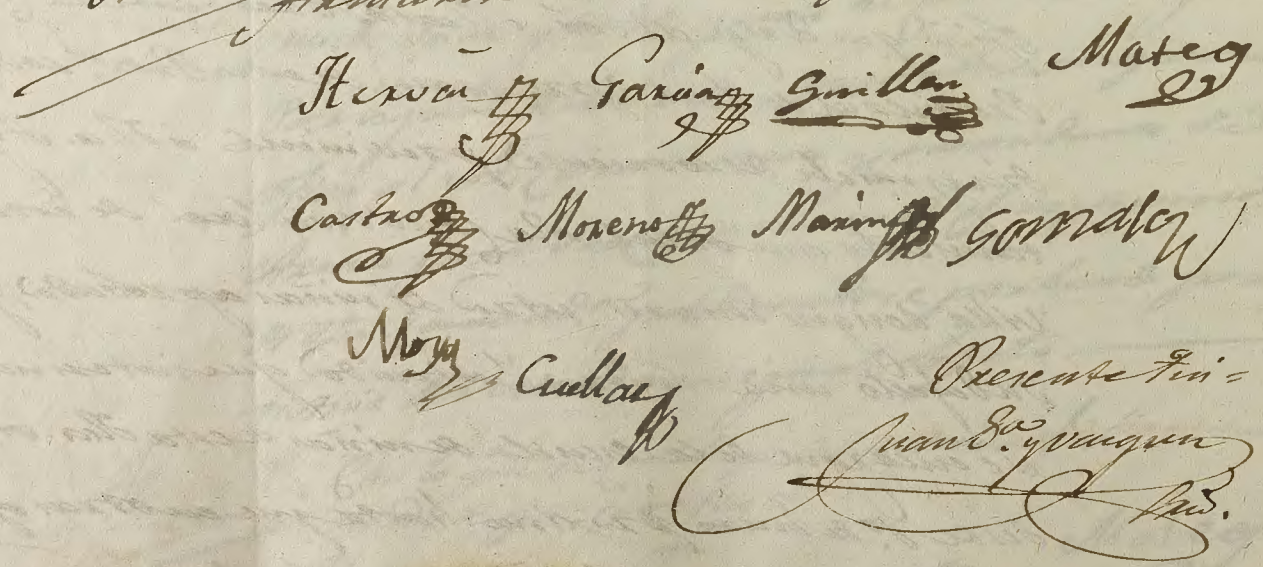 Hervâs Garcia Guillen Mateo
Castro Moreno Marin Gonzalez
Moya Cuellar
Presente Fui=
Juan Ga. y